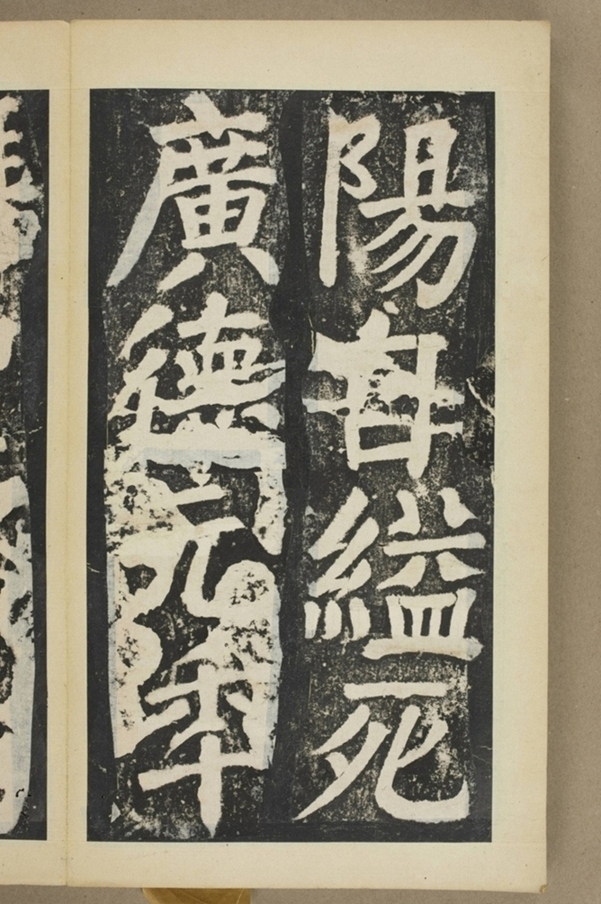 陽母縊死
廣德元年